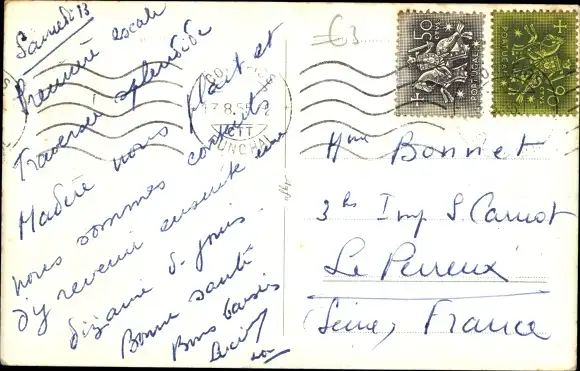 Samedi 13
Première escale
Traversée splendide
Madère nous plaît et
nous sommes contents
d'y revenir ensuite une
dizaine de jours.
Bonne santé
Bons baisers
Lucien
€3
1$50
CTT
FUNCHAL
Mme Bonnet
3 bis Imp S. Carnot
Le Perreux
(Seine) France